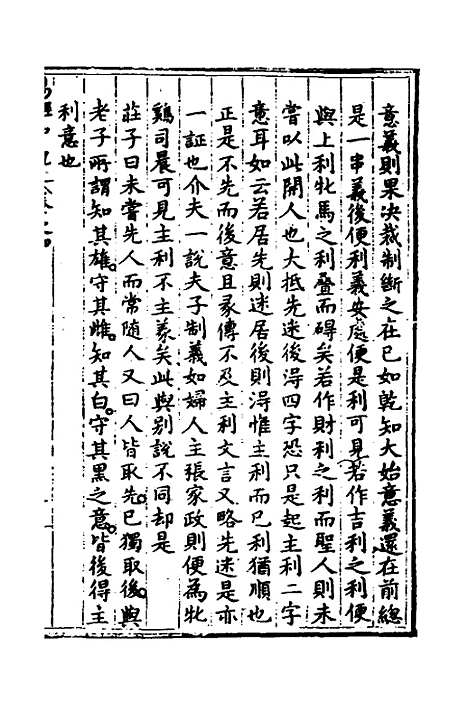 意義則果決裁制斷之在已如乾知大始意義還在前總
是一串義後便利義安處便是利可見若作吉利之利便
與上利牝馬之利疊而碍矣若作財利之利而聖人則未
嘗以此開人也大抵先迷後得四字恐只是起主利二字
意耳如云若居先則迷居後則得惟主利而已利猶順也
正是不先而後意且彖傳不及主利文言又略先迷是亦
一証也介夫一說夫子制義如婦人主張家政則便為牝
鷄司晨可見主利不主義矣此與别說不同却是
莊子曰未嘗先人而常随人又曰人皆取先已獨取後與
老子所謂知其雄守其雌知其白守其黑之意皆後得主
利意也